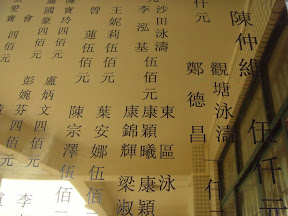 陳仲維 伍仟元
觀塘泳濤 仟
鄭德昌
東區泳
康穎曦 康穎
康錦輝 梁淑
仟元
沙田泳濤
李泓基 伍佰元
王妮莉 伍佰元
曾 蓮 伍佰元
葉安娜 伍佰
陳宗澤 伍佰元
寶玲 四佰元
國豪 四佰元
四佰元
盧炳文 四佰元
彭婉芬 四佰元
李